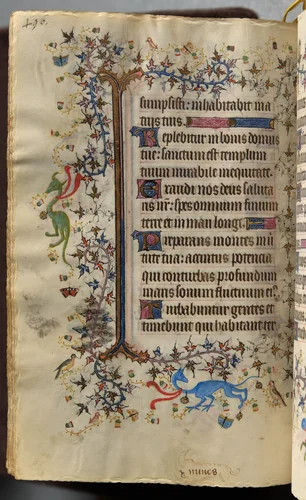 490.
sumpsisti: inhabitabit in a
trijs tuis.
Replebitur in bonis domus
tue: sanctum est templum
tuum mirabile in equitate.
Exaudi nos deus saluta
ris nr: spes omnium finium
terre et in mari longe.
Preparans montes in uir
tute tua: accintus potencia
qui conturbas profundum
maris sonum fluctuum eī.
Turbabuntur gentes et
timebunt qui habitant ter
minos